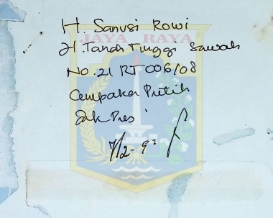 H. Sanusi Rowi
JAYA RAYA
Jl Tanah Tinggi Sawah
No. 21 RT 006/08
Cempaka Putih
Jak Pus